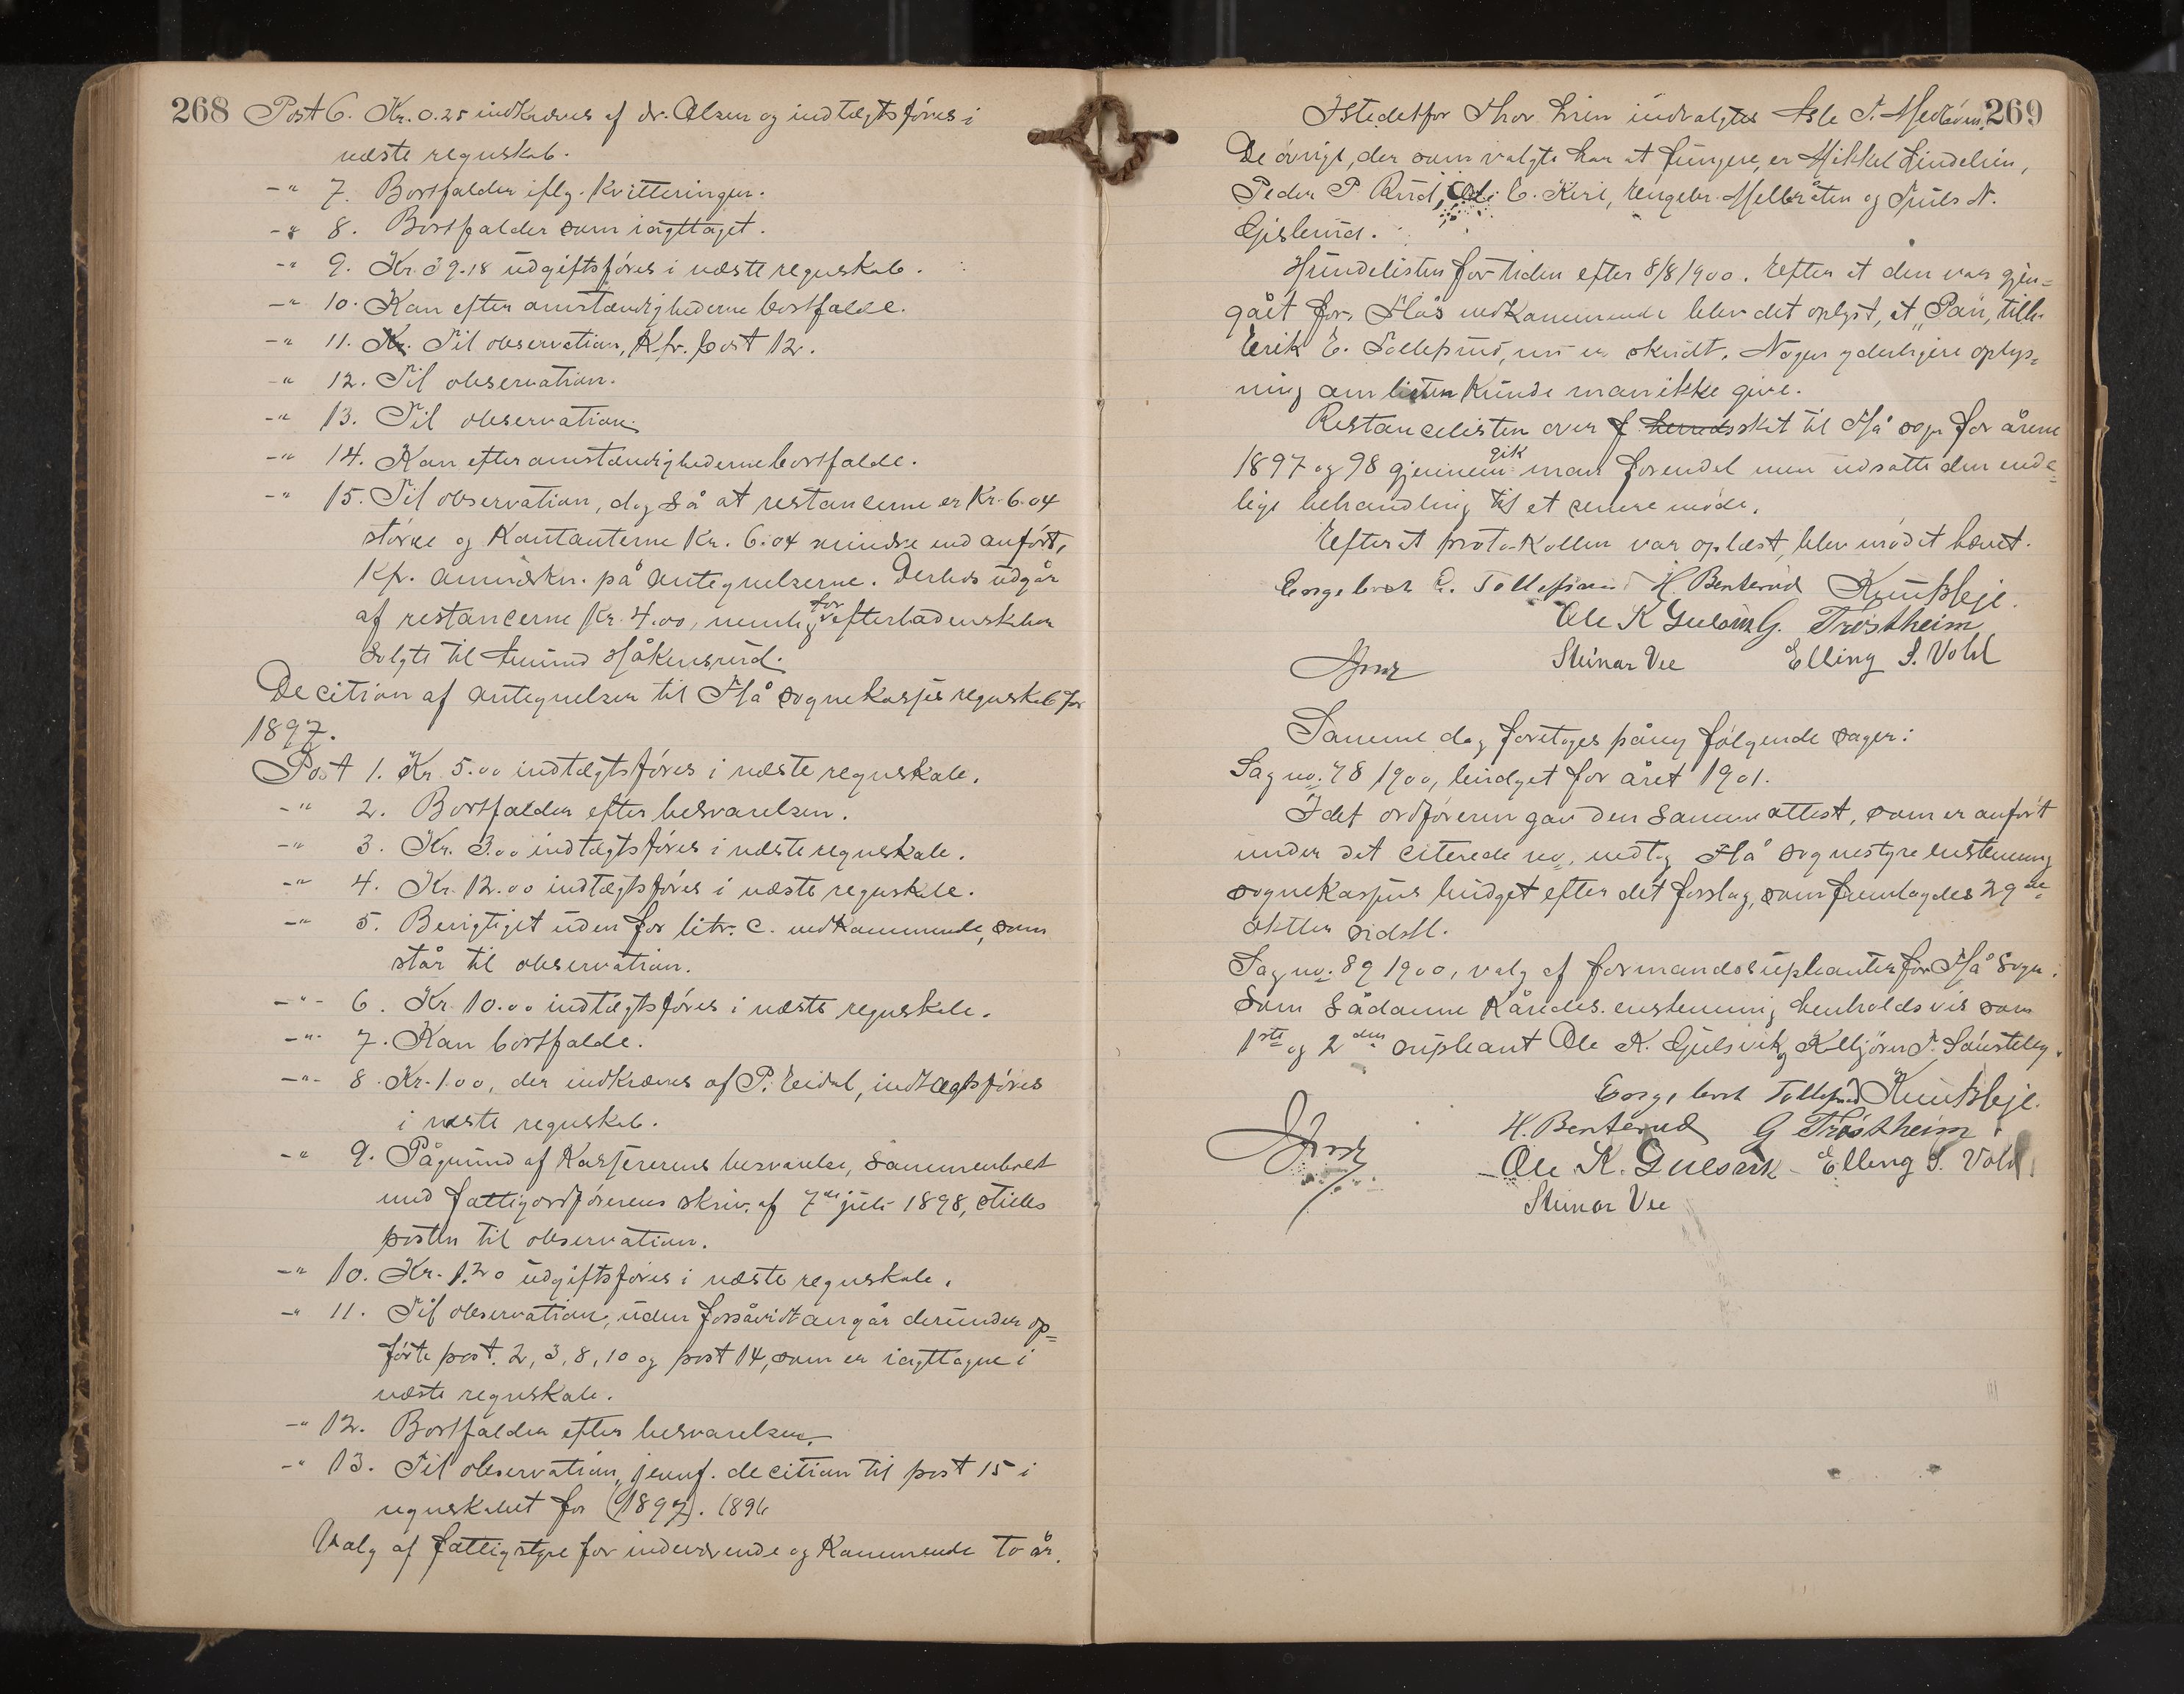 268
Post 6. Kr. 0.25 indkræves af dr. Olsen og indtægtsføres i
næste regnskab.
-"- 7. Bortfalder iflg. kvitteringen.
-"- 8. Bortfalder som iagttaget.
-"- 9. Kr. 39.18 udgiftsføres i næste regnskab.
-"- 10. Kan efter omstændighederne bortfalde.
-"- 11. Til observation, kfr. post 12.
-"- 12. Til observation.
-"- 13. Til observation.
-"- 14. Kan efter omstændighederne bortfalde.
-"- 15. Til observation, dog så at restancerne er Kr. 6.04
større og kontanterne Kr. 6.04 mindre end anført,
kfr. anmærkn. på antegnelserne. Derhos udgår
af restancerne Kr. 4.00, nemlig for efterladenskaber
solgte til Håkensrud.
Decition af antegnelser til Flå sognekasses regnskab for
1897.
Post 1. Kr. 5.00 indtægtsføres i næste regnskab.
-"- 2. Bortfalder efter besvarelsen.
-"- 3. Kr. 3.00 indtægtsføres i næste regnskab.
-"- 4. Kr. 12.00 indtægtsføres i næste regnskab.
-"- 5. Berigtiget uden for litr. c. vedkommende, som
står til observation.
-"- 6. Kr. 10.00 indtægtsføres i næste regnskab.
-"- 7. Kan bortfalde.
-"- 8. Kr. 1.00, der indkræves af P. Eidal, indtægtsføres
i næste regnskab.
-"- 9. På grund af kassererens besvarelse, sammenholdt
med fattigordførerens skriv. af 7de juli 1898, stilles
posten til observation.
-"- 10. Kr. 1.20 udgiftsføres i næste regnskab.
-"- 11. Til observation, uden forsåvidt angår derunder op=
førte post. 2, 3, 8, 10 og post 14, som er iagttagne i
næste regnskab.
-"- 12. Bortfalder efter besvarelsen.
-"- 13. Til observation, jevnf. decition til post 15 i
regnskabet for (1897). 1896
Valg af fattigstyre for indeværende og kommende to år.
269
Istedetfor Thor Lien indvalgtes Asle T.
De øvrige, der som valgte har at fungere, er Mikkel Lindelien,
Peder P. Rud, Ole E. Engebr. Mellbråten og Truls N.
Gislerud.
Hundelisten for tiden efter 8/8 1900. Efter at den var gjen=
gået for Flås vedkommende blev det oplyst, at "Pan", tilh.
Erik E. Tollefsrud, nu er skudt. Nogen yderligere oplys=
ning om listen kunde man ikke give.
Restancelisten over f. herredsskat til Flå sogn for årene
1897 og 98 gjennemgik man forendel men udsatte den ende=
lige behandling til et senere møde.
Efterat protokollen var oplæst, blev mødet hævet.
Engebret E. Tollefsrud H. Benterud Knut Sleje.
Ole K Gulsvik G. Trøstheim
Steinar Vee Elling S. Vold
Samme dag foretoges påny følgende sager:
Sag no. 78 1900, budget for året 1901.
Idet ordføreren gav den samme attest, som er anført
under det citerede no. vedtog Flå sognestyre enstemmig
sognekassens budget efter det forslag, som fremlagdes 29de
oktbr. sidstl.
Sag no. 89 1900, valg af formandssupleanter for Flå sogn.
Som sådanne kåredes enstemmig henholdsvis som
1ste og 2den supleant Ole K. Gulsvik og
Engebret Tollefsrud Knut Sleje.
H. Benterud G Trøstheim
Ole K. Gulsvik Elling S. Vold
Steinar Vee